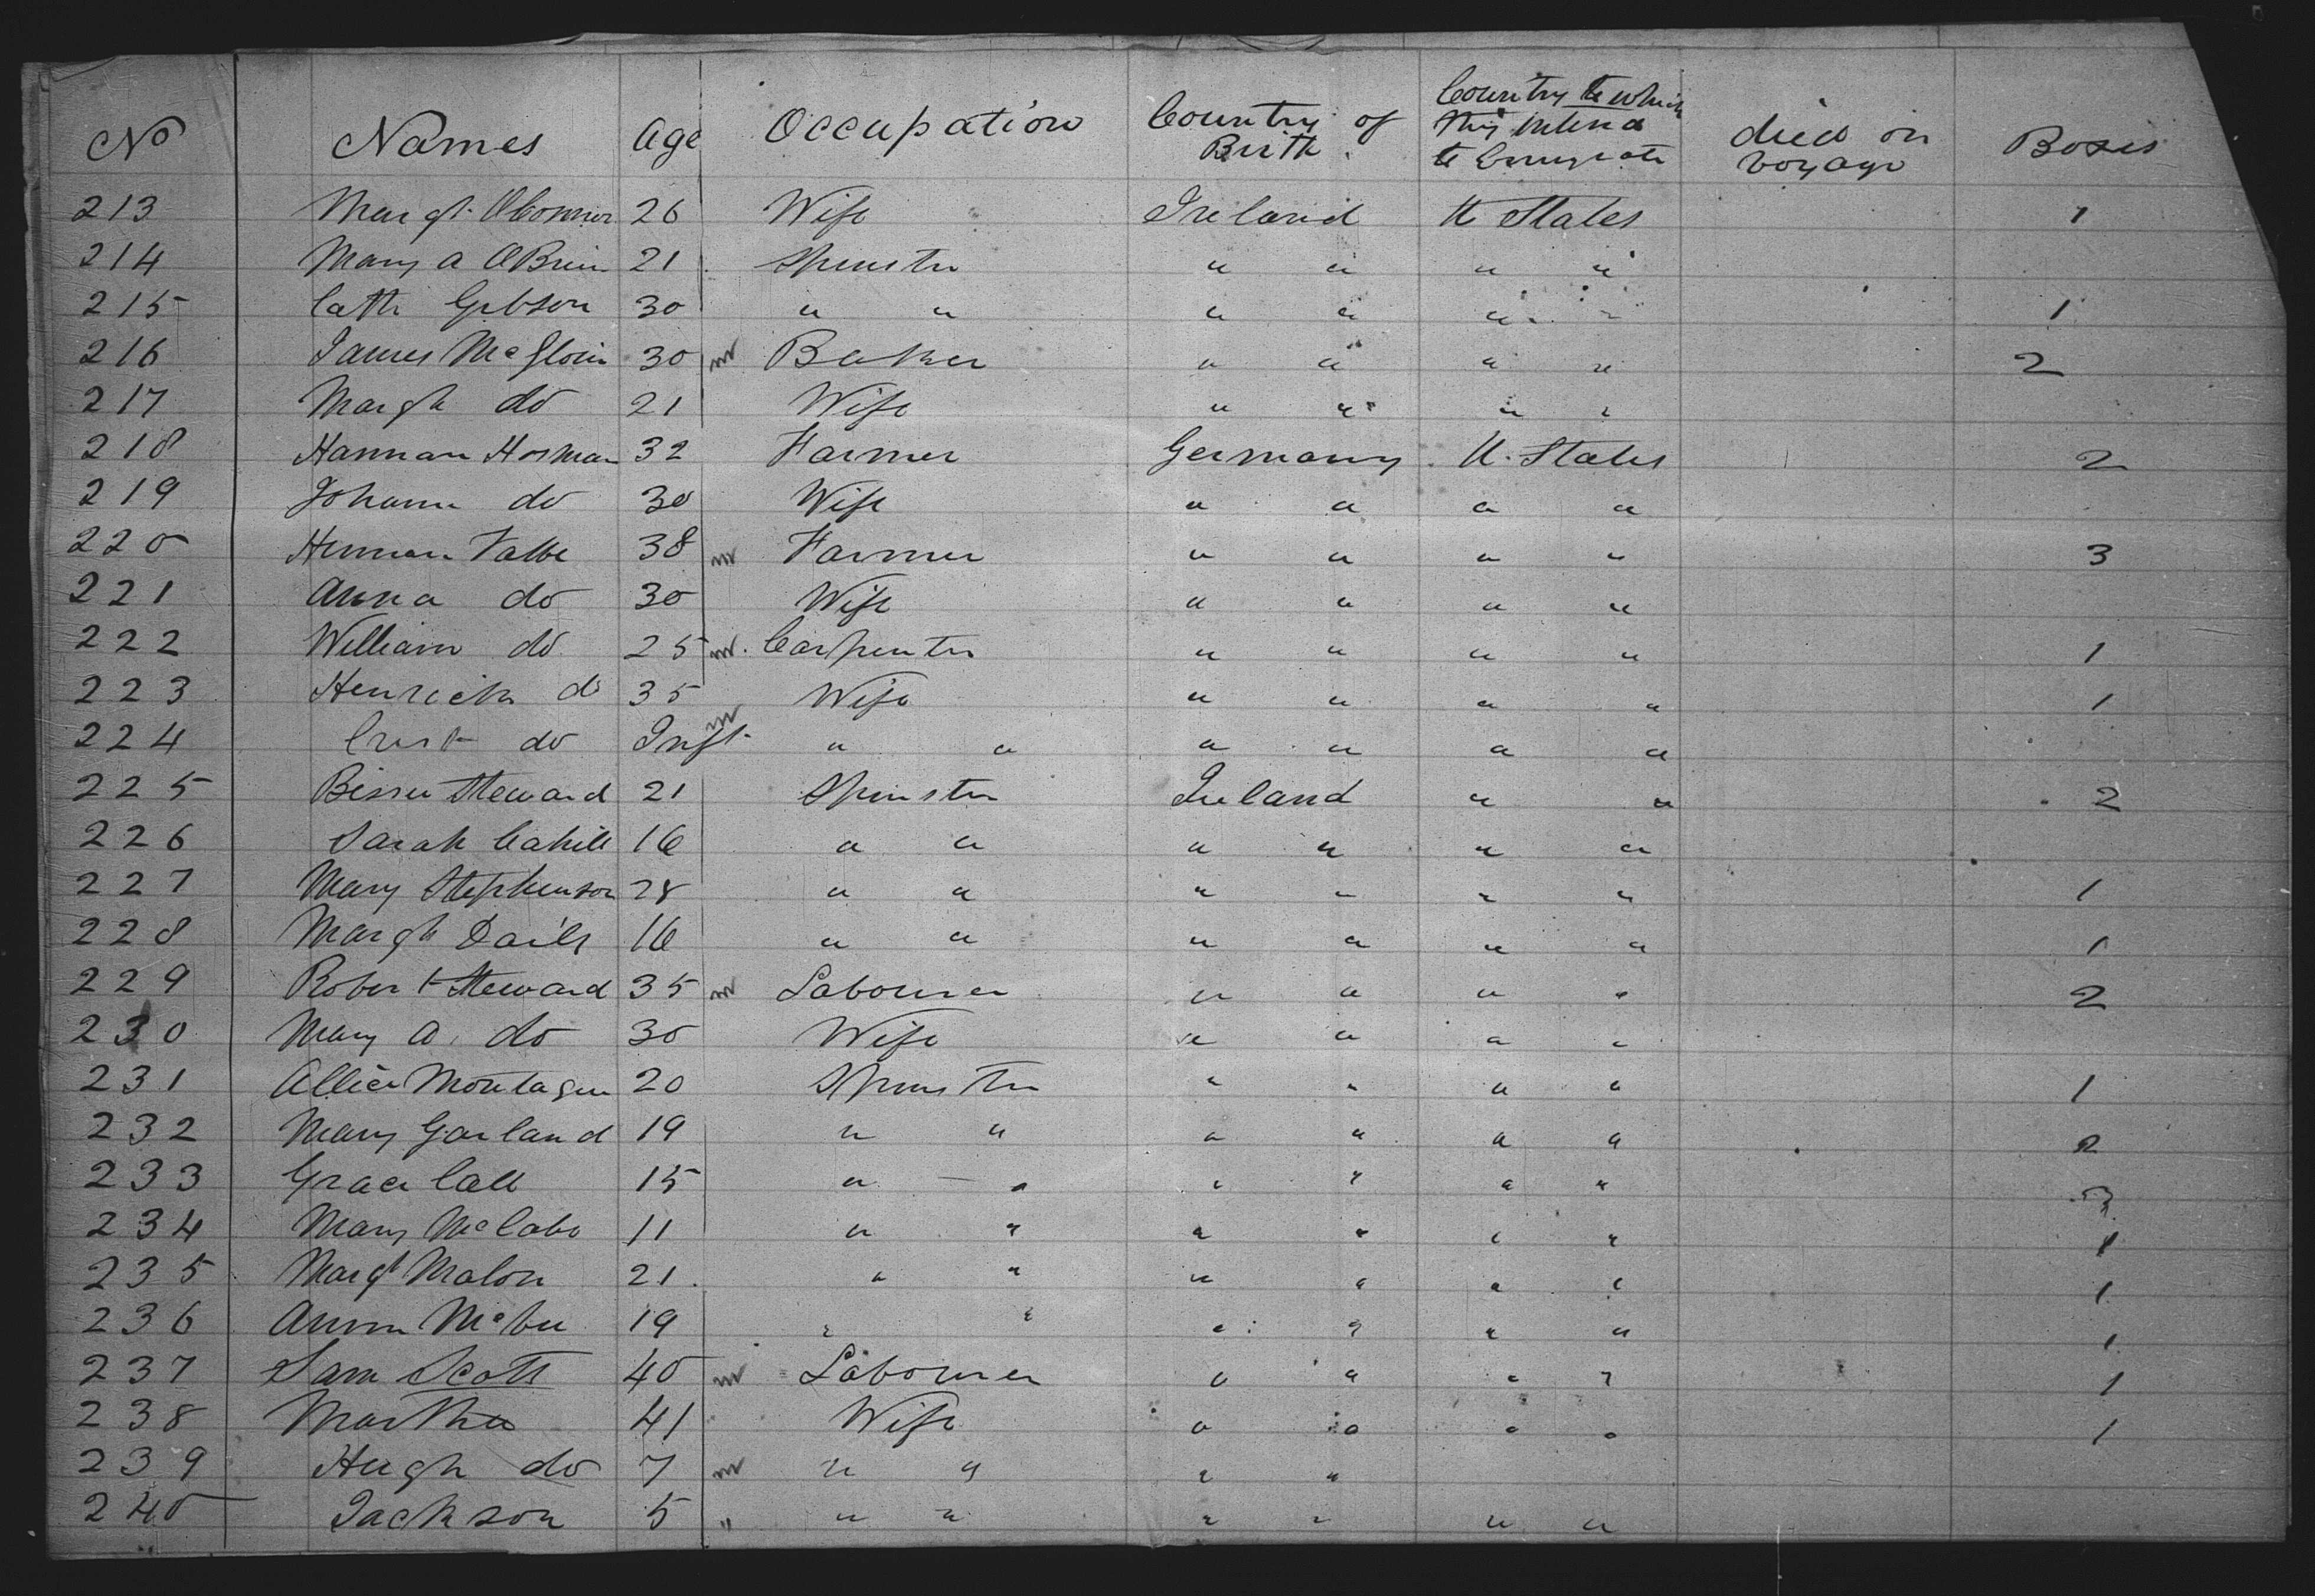 No Names Age Occupation Country of Birth Country to which they intend to Emigrate died on voyage Boxes
213 Margt. OConnor 26 Wife Ireland U States 1
214 Mary A OBrien 21 Spinster " " " "
215 Cath Gibson 30 " " " " " " 1
216 James McGloin 30 m Baker " " " " 2
217 Margt do 21 Wife " " " "
218 Hannan Hosman 32 Farmer Germany U. States 2
219 Johann do 30 Wife " " " "
220 Herman Valbe 38 m Farmer " " " " 3
221 Anna do 30 Wife " " " "
222 William do 25 m. Carpenter " " " " 1
223 Henrich do 35 Wife " " " " 1
224 do Inft m " " " " " "
225 Steward 21 Spinster Ireland " " 2
226 Sarah Cahill 16 " " " " " "
227 Mary Stephenson 28 " " " " " " 1
228 Margt Daily 16 " " " " " " 1
229 Robert Steward 35 m Labourer " " " " 2
230 Mary A. do 30 Wife " " " "
231 Allice Montague 20 Spinster " " " " 1
232 Mary Garland 19 " " " " " " 2
233 Grace Call 15 " " " " " "
234 Mary McCabe 11 " " " " " " 1
235 Margt Malon 21. " " " " " " 1
236 Ann 19 " " " " " " 1
237 Sam Scott 40 m Labourer " " " " 1
238 Martha 41 Wife " " " " 1
239 Hugh do 7 m " " " "
240 Jackson 5 " " " " " " "